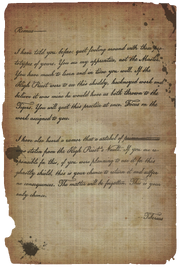 Bemus
I have told you before: quit fooling around with those
eclipses of yours. You are my apprentice, not the Master.
You have much to learn and in time you will. If the
High Priest were to see this shoddy, harbinged work and
listen at one noon he would have us both thrown to the
Tigers. You will quit this practice at once. Focus on the
work assigned to you.
I have also heard a rumor that a satchel of
was stolen from the High Priest's Vault. If you are
responsible for this, if you were planning to use it for this
ghastly shield, this is your chance to return it and suffer
no consequences. The matter will be forgotten. This is your
only chance.